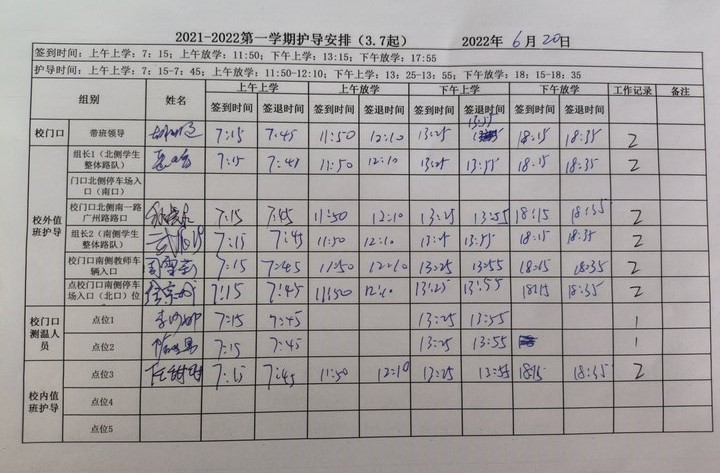 2021-2022第一学期护导安排（3.7起） 2022年 6月 20日
签到时间：上午上学：7：15；上午放学：11:50；下午上学：13:15；下午放学：17:55
护导时间：上午上学：7:15-7：45；上午放学：11:50-12:10；下午上学：13：25-13：55；下午放学：18：15-18：35
组别 姓名 上午上学 上午放学 下午上学 下午放学 工作记录 备注
签到时间 签退时间 签到时间 签退时间 签到时间 签退时间 签到时间 签退时间
校门口 带班领导 7:15 7:45 11:50 12:10 13:25 13:55 18:15 18:35 2
校外值班护导
组长1（北侧学生
整体路队） 7:15 7:45 11:50 12:10 13:25 13:55 18:15 18:35 2
门口北侧停车场入
口（南口）
校门口北侧南一路
广州路路口 7:15 7:45 11:50 12:10 13:25 13:55 18:15 18:35 2
组长2（南侧学生
整体路队） 7:15 7:45 11:50 12:10 13:25 13:55 18:15 18:35 2
校门口南侧教师车
辆入口 7:15 7:45 11:50 12:10 13:25 13:55 18:15 18:35 2
点校门口南侧停车
场入口（北口）位 7:15 7:45 11:50 12:10 13:25 13:55 18:15 18:35 2
校门口测温人员
点位1 7:15 7:45 13:25 13:55 1
点位2 7:15 7:45 13:25 13:55 1
校内值班护导
点位3 7:15 7:45 11:50 12:10 13:25 13:55 18:15 18:35 2
点位4
点位5